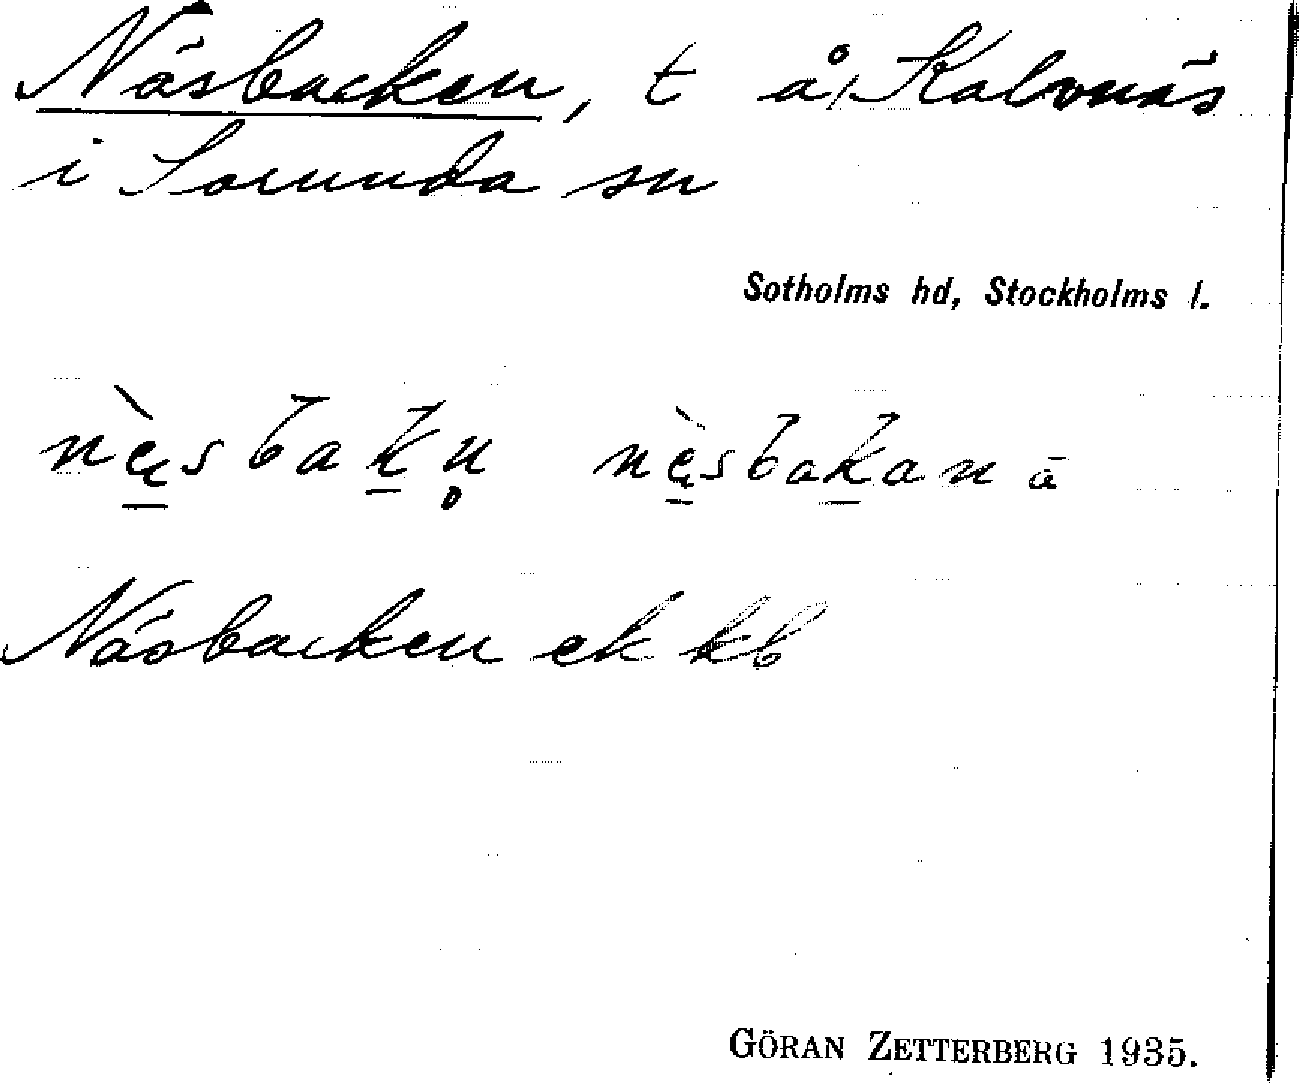 Näsbacken, t å Kalvnäs
i Sorunda sn
Sotholms hd, Stockholms l.
nę̀sbakn̥ nę̀sbakan ā
Näsbacken ek kb
GÖRAN ZETTERBERG 1935.